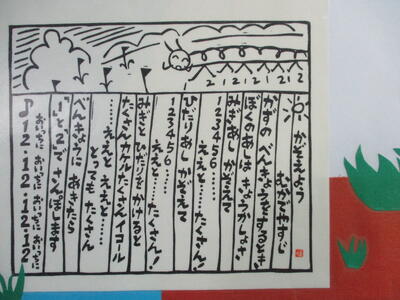 12121212
かぞえよう
むかでやすじ
かずの べんきょうするときね
ぼくのあしは きょうかしょさ
みぎあし かぞえて
123456……
ええと……たくさん!
ひだりあし かぞえて
123456……
ええと…たくさん!
みぎと ひだりで かけると
たくさんカケルたくさんイコール
……ええと ええと……
とっても たくさん
べんきょうに あきたら
「1と2」で さんぽします
おいっちに おいっちに おいっちに おいっちに
♪12・12・12・12